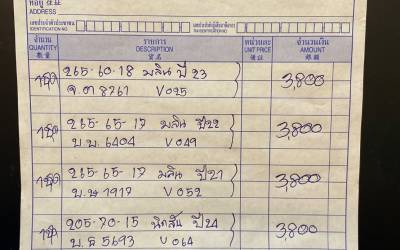 ที่อยู่ 住址
ADDRESS
เลขประจำตัวประชาชน
IDENTIFICATION NO.
เลขประจำตัวผู้เสียภาษีอากร
TAX IDENTIFICATION NO.
จำนวน รายการ หน่วยละ จำนวนเงิน
QUANTITY DESCRIPTION UNIT PRICE AMOUNT
數量 貨名 價註 銀額
1ชุด 265-60-18 ปี 23 3,800
8761 V025
1ชุด 265-65-17 ปี22 3,800
บ.พ. 6404 V049
1ชุด 265-65-17 ปี21 3,800
บ.ษ 1917 V052
1ชุด 205-70-15 ปี24 3,800
5693 V064